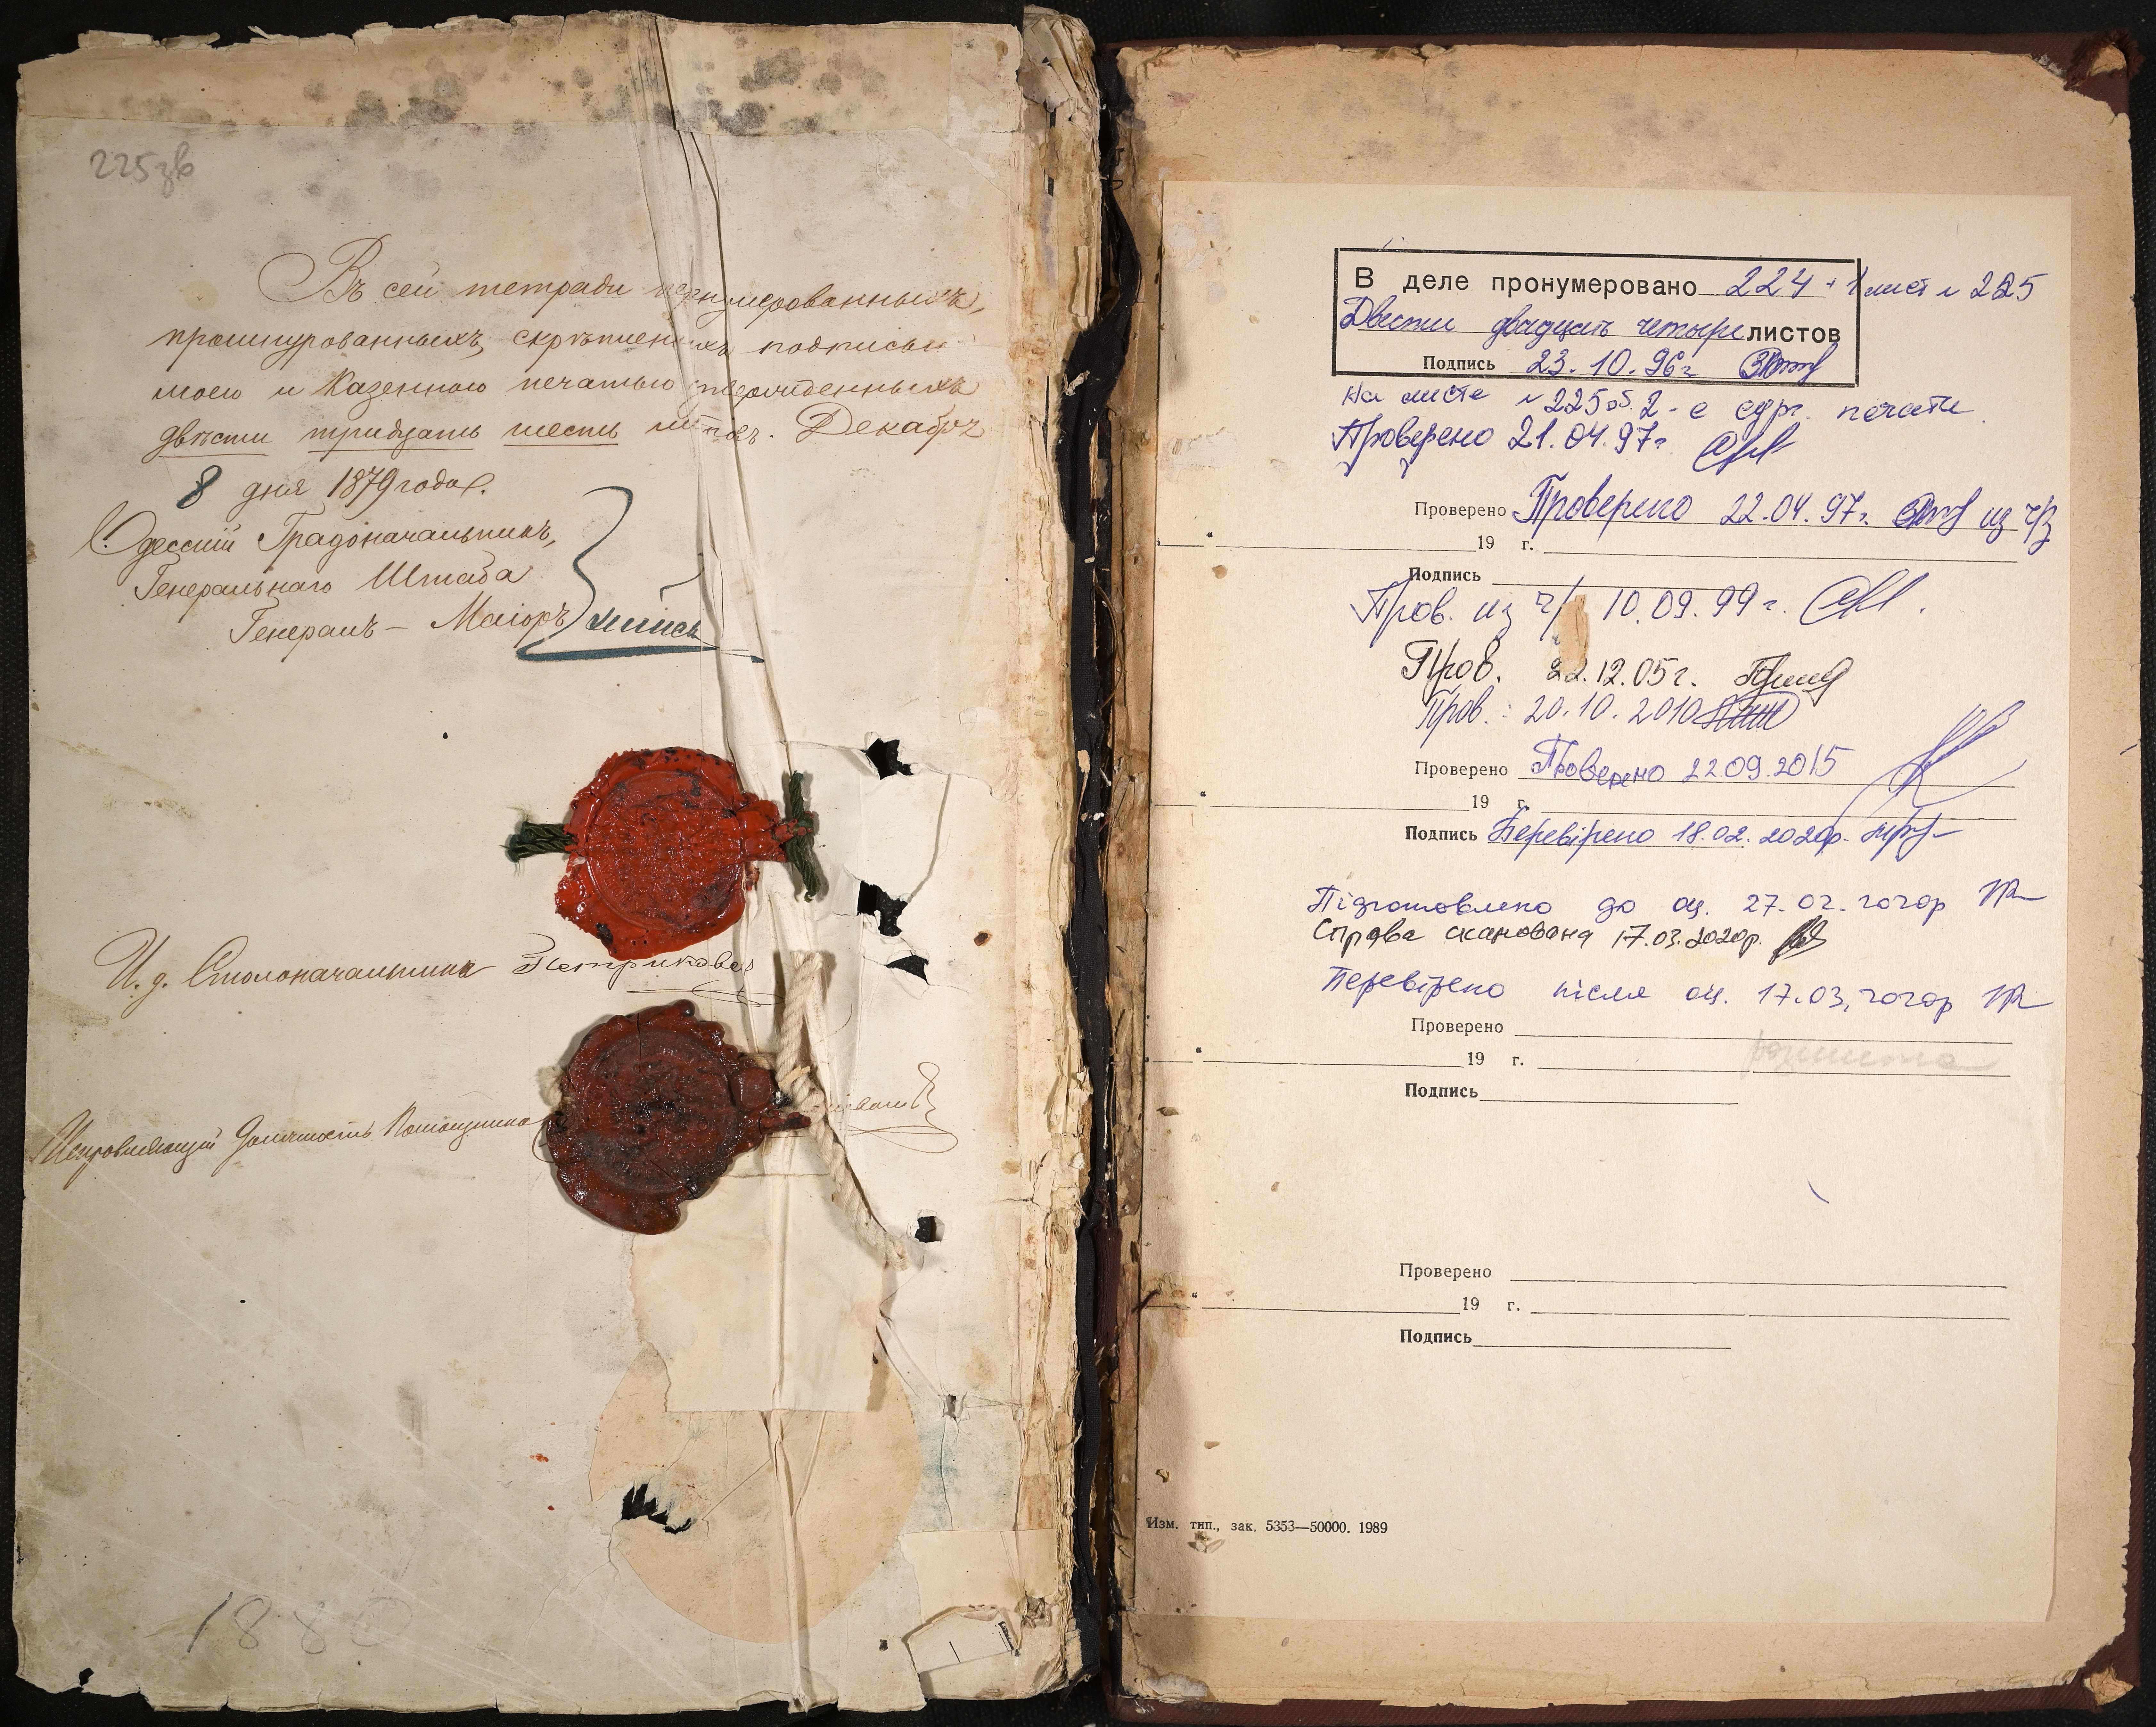 225зв
Въ сей тетради пронумерованныхъ,
прошнурованныхъ, скрѣпленныхъ подписью
моею и Казенною печатью утвержденныхъ
двѣсти тридцать шесть листовъ. Декабря
8 дня 1879 года.
Одесскій Градоначальникъ,
Генеральнаго Штаба
Генералъ-Маіоръ
И. д. Столоначальника
Исправляющій Должность Помощника
1880
В деле пронумеровано 224 + 1 лист № 225
Двести двадцать четыре листов
Подпись 23.10.96г
На листе № 225об. 2-е сург. печати
Проверено 21.04.97г.
Проверено Проверено 22.04.97г. из ч/з
" 19 г.
Подпись
Пров. из ч/ 10.09.99г.
Пров. 22.12.05г.
Пров.: 20.10.2010
Проверено Проверено 22.09.2015
" 19 г.
Подпись Перевірено 18.02.2020р.
Підготовлено до оц. 27.02.2020р
Справа сканована 17.03.2020р.
Перевірено після оц. 17.03.2020р
Проверено
" 19 г.
Подпись
Проверено
" 19 г.
Подпись
Изм. тип., зак. 5353—50000. 1989